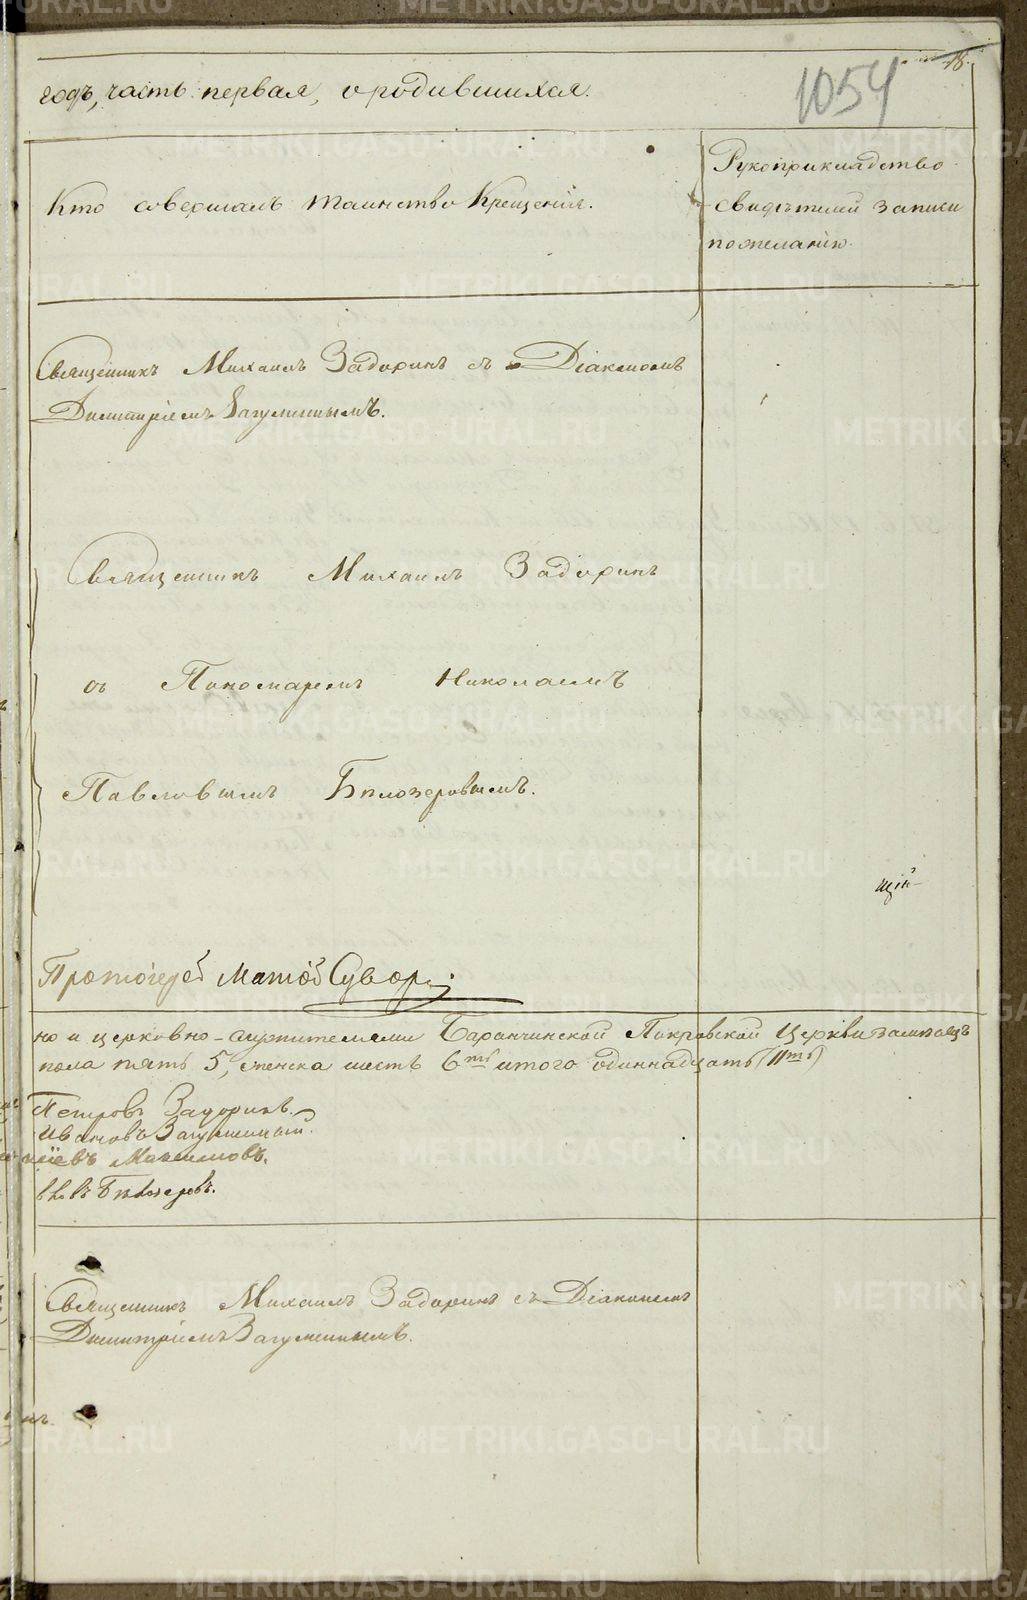 18.
1054
годъ, часть первая, о родившихся.
Кто совершалъ таинство Крещенія.
Рукоприкладство
свидѣтелей записи
по желанію.
Священникъ Михаилъ Задоринъ съ Діакономъ
Димитріемъ Загуменнымъ.
Священникъ Михаилъ Задоринъ
съ Пономаремъ Николаемъ
Павловымъ Бѣлозеровымъ.
щій
Протоіерей Матѳей Сувор
но и церковно-служителями Баранчинской Покровской Церкви
пола пять 5, женска шесть 6ть итого одиннадцать (11ть)
Петровъ Задоринъ.
Ивановъ Загуменный.
Максимовъ.
вловъ Бѣлозеровъ.
Священникъ Михаилъ Задоринъ съ Діакономъ
Димитріемъ Загуменнымъ.
METRIKI.GASO-URAL.RU